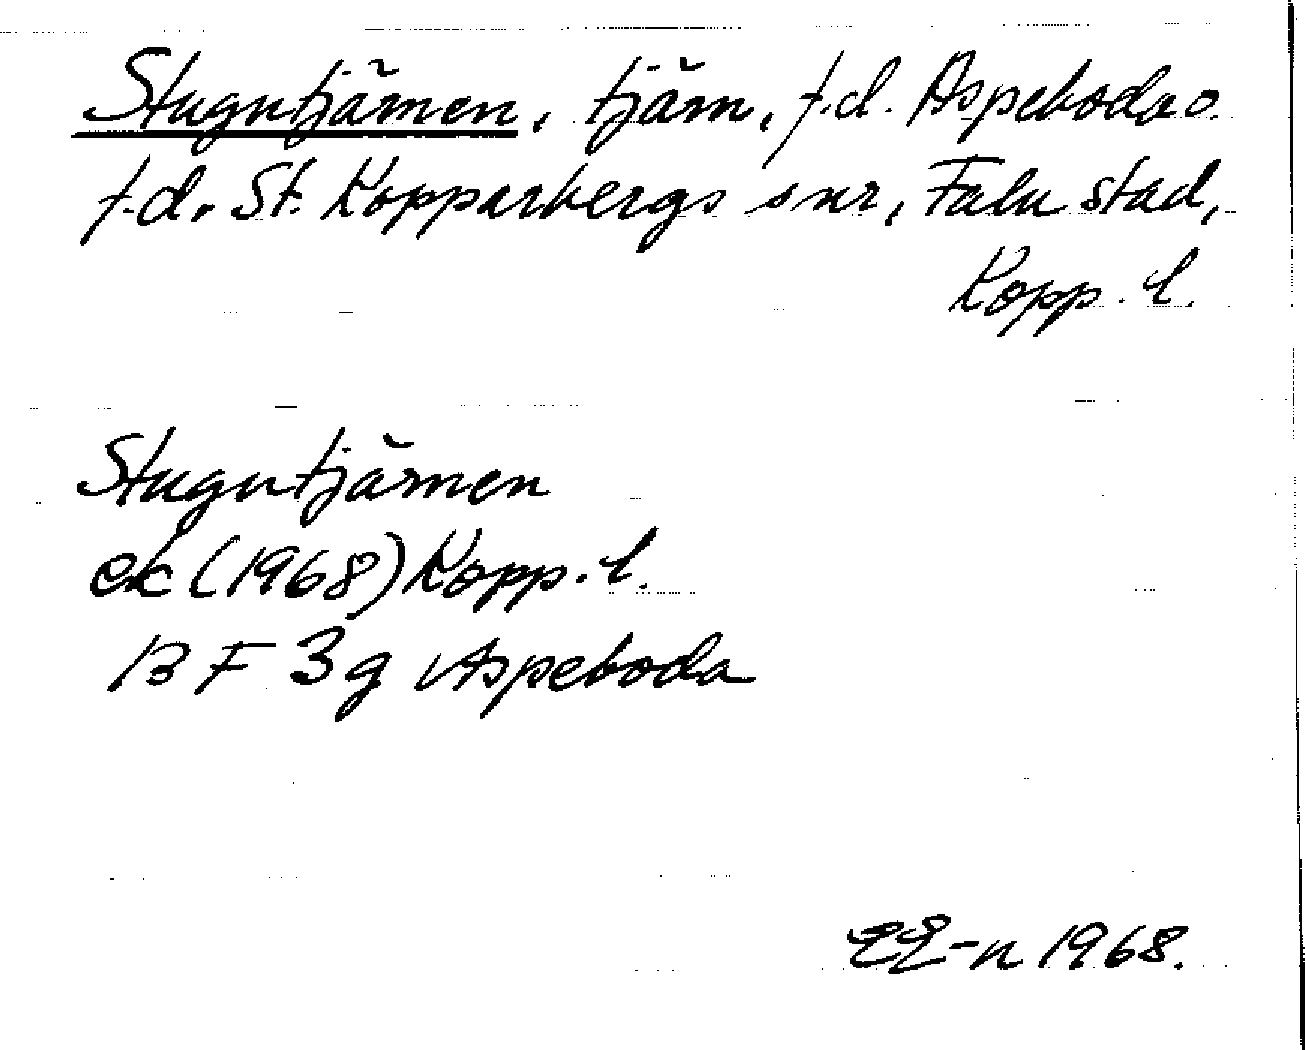 Stugutjärnen, tjärn, f.d. Aspeboda o.
f.d. St. Kopparbergs snr, Falu stad,
Kopp. l.
Stugutjärnen
ek (1968) Kopp. l.
13 F 3g Aspeboda
EE-n 1968.